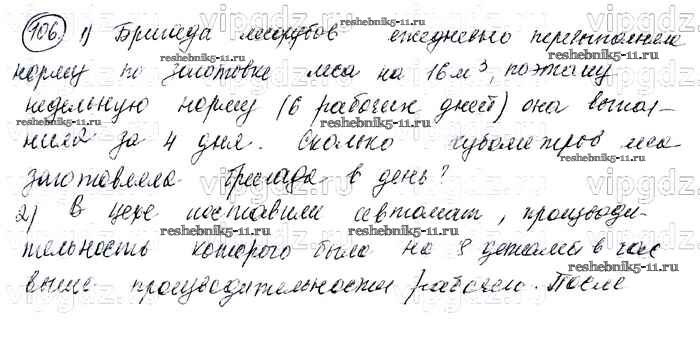 106. 1) Бригада лесорубов ежедневно перевыполняла
норму по заготовке леса на 16 м³, поэтому
недельную норму (6 рабочих дней) она выпол-
нила за 4 дня. Сколько кубометров леса
заготовляла бригада в день?
2) В цехе поставили автомат, производи-
тельность которого была на 8 деталей в час
выше производительности рабочего. После
reshebnik5-11.ru
vipgdz.ru